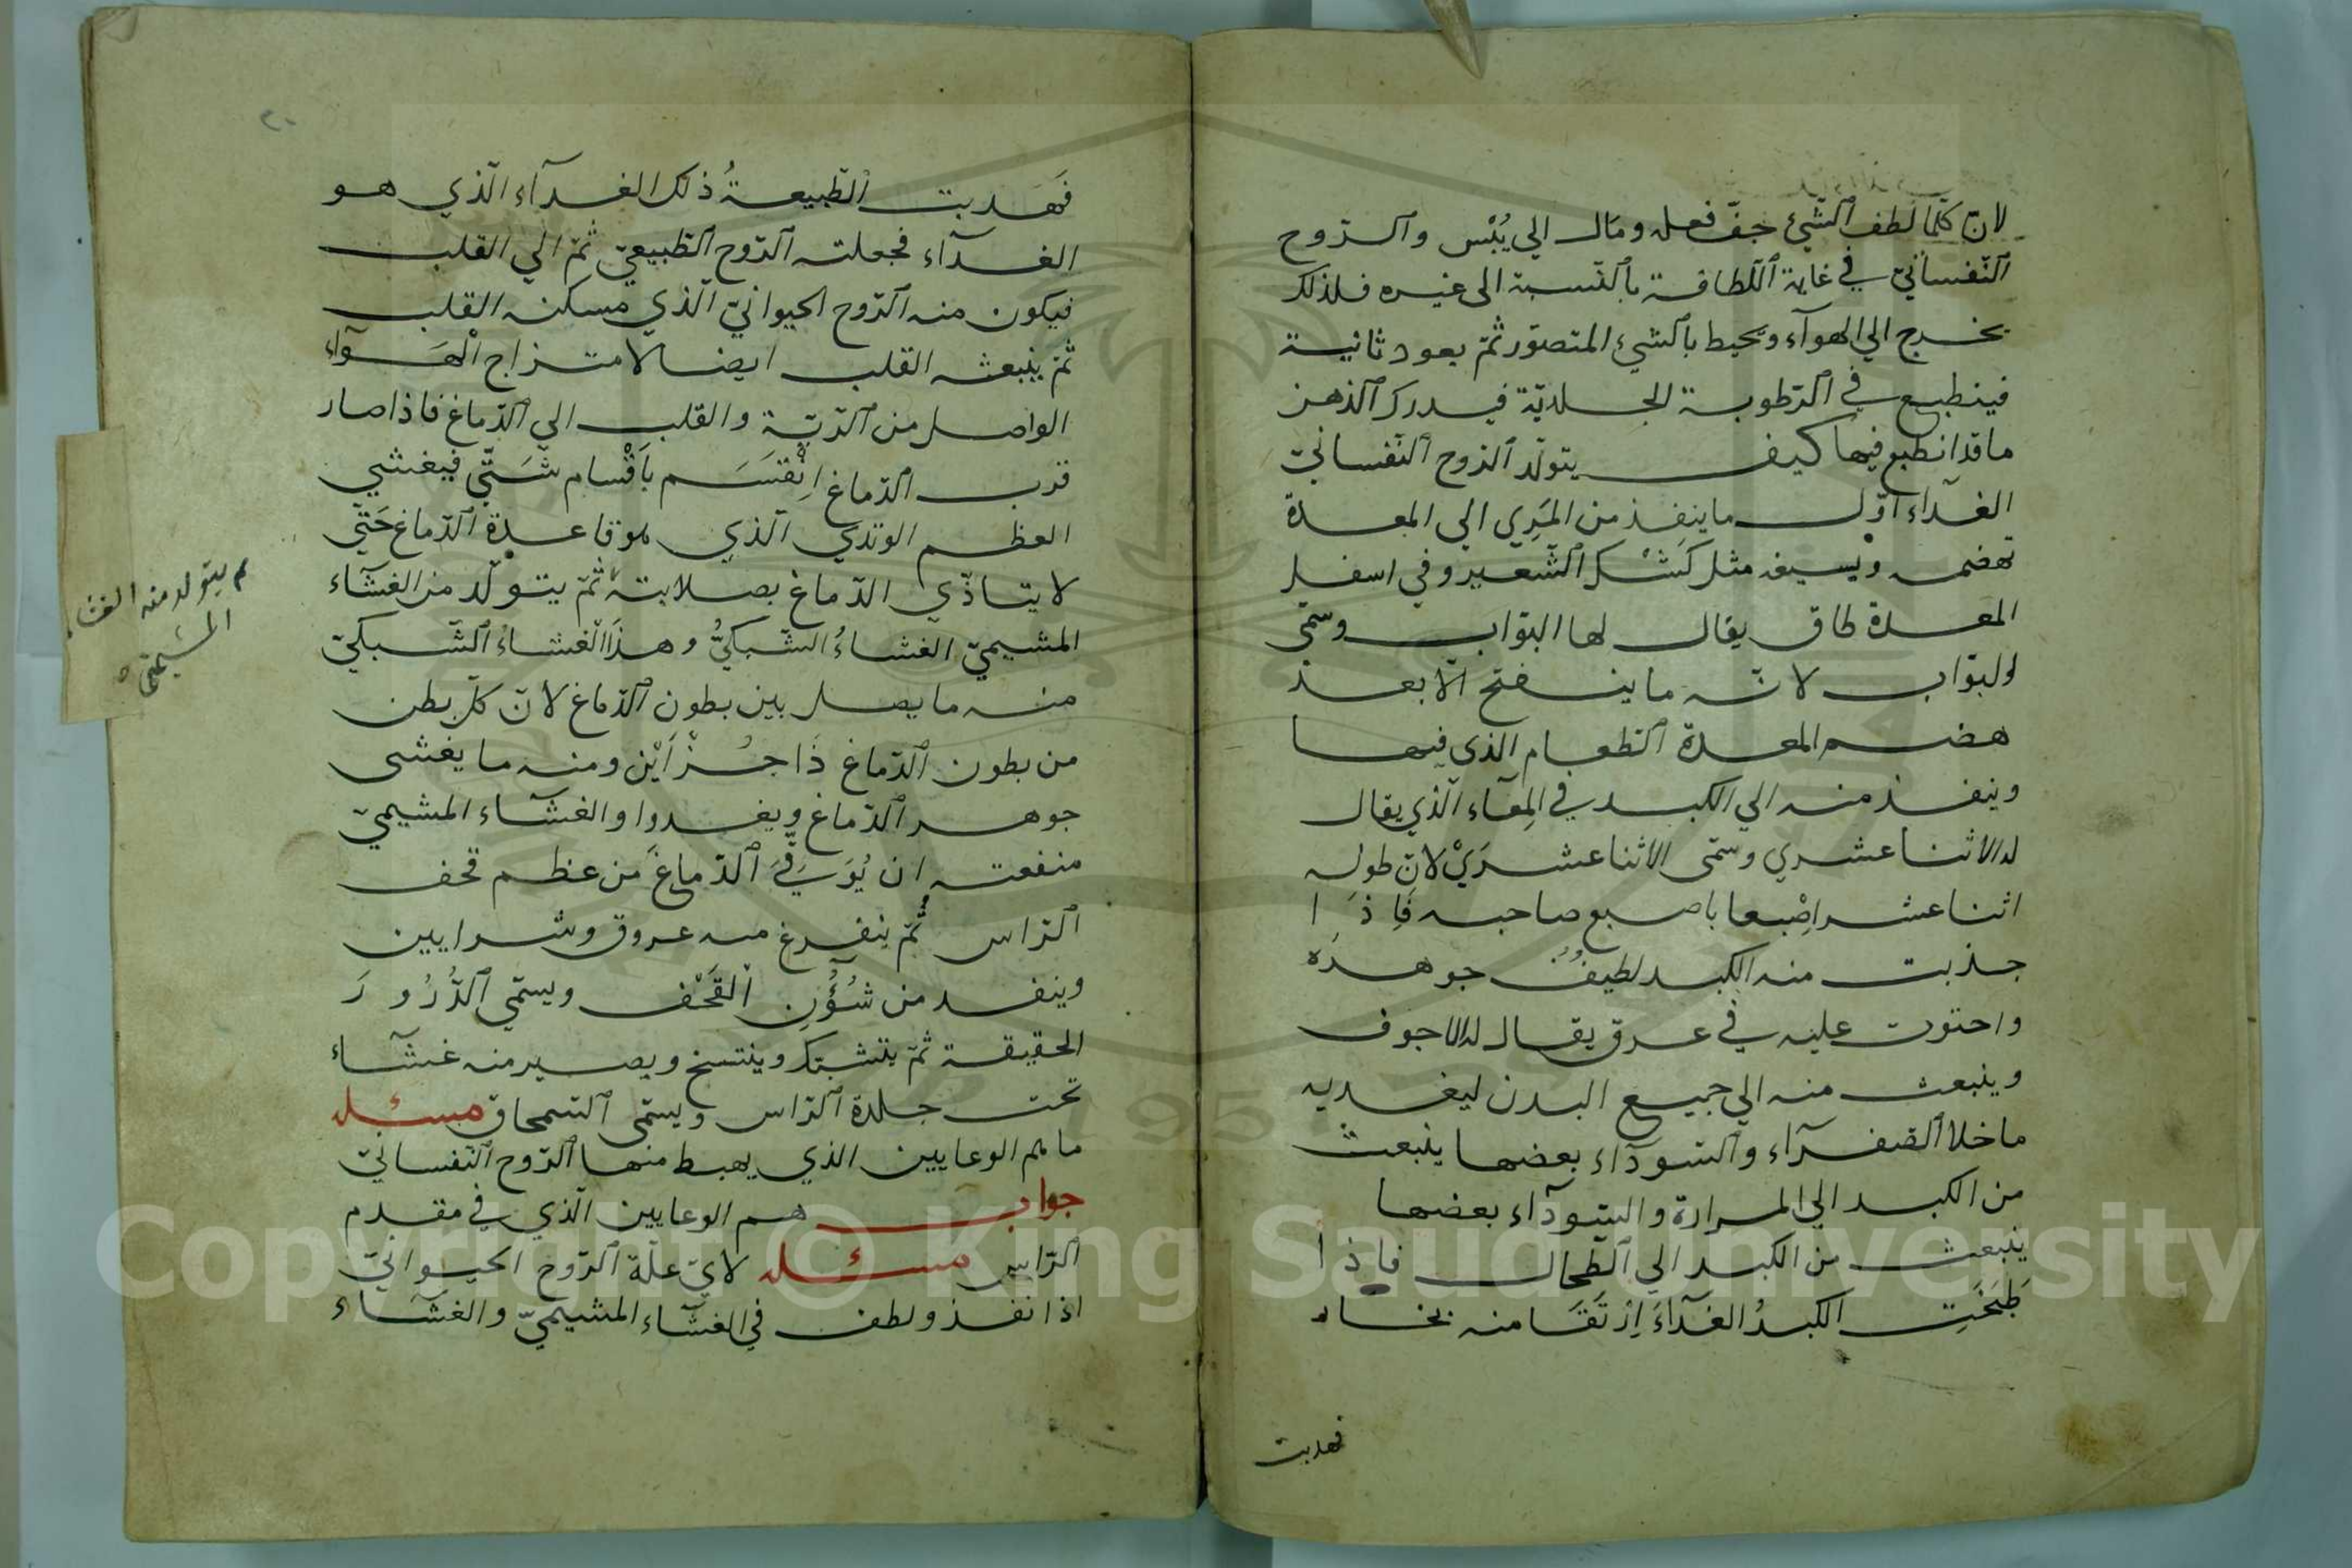 لان كلما لطف الشئ جف فعله ومال الي يُبْس والروح
النفساني في غاية اللطافة بالنسبة الى غيره فلذلك
يخرج الي الهوآء ويحيط بالشئ المتصور ثم يعود ثانية
فينطبع في الرطوبة الجلدية فيدرك الذهن
ما قد انطبع فيها كيف يتولد الروح النفساني
الغدآء اول ما ينفذ من المَرِي الي المعدة
تهضمه ويسيغه مثل كشك الشعير وفي اسفل
المعدة طاق يقال لها البواب وسمى
البواب لانه ما ينفتح الا بعد
هضم المعدة الطعام الذى فيها
وينفذ منه الي الكبد في المِعآء الذي يقال
له الاثنا عشري وسمى الاثنا عشرَيْ لان طوله
اثنا عشر اصْبعا باصبع صاحبه فاِذَا
جذبت منه الكبد لطيفُ جوهرَه
واحتوت عليه في عرق يقال له الاجوف
وينبعث منه الي جميع البدن ليغديه
ما خلا الصفرآء والسودآء بعضها ينبعث
من الكبد الي المرارة والسودآء بعضها
ينبعث من الكبد الي الطحال فاذا
طَبَخَتِ الكبدُ الغدآءَ اِرْتَقَا منه بخار
فهدبت
فَهَدبت الطبيعةُ ذلك الغدآء الذي هو
الغدآء فجعلته الروح الطبيعي ثم الي القلب
فيكون منه الروح الحيواني الذي مسكنه القلب
ثم ينبعث القلب ايضا لامتزاج الْهَوآء
الواصل من الرية والقلب الي الدماغ فاذا صار
قرب الدماغ اِنْقسَم بأَقْسام شَتّي فيغشي
العظم الوتدي الذي هو قاعدة الدماغ حَتّي
لا يتاذي الدماغ بصلابته ثم يتولد من الغشآء
المشيمي الغشاءُ الشبكيُّ وهذا الغشاءُ الشبكي
منه ما يصل بين بطون الدماغ لان كل بطن
من بطون الدماغ ذا جُزْأَيْن ومنه ما يغشى
جوهر الدماغ ويغدوا والغشآء المشيمي
منفعته ان يُوَقَّيَ الدماغَ من عظم قحف
الراس ثم يتفرغ منه عروق وشرايين
وينفد من شُؤُنِ الْقَحْف ويسمي الدُّرُورَ
الحقيقة ثم يتشبك وينتسخ ويصير منه غشآء
تحت جلدة الراس ويسمى السمحاق مسئله
ما هم الوعايين الذي يهبط منها الروح النفساني
جواب هم الوعايين الذي في مقدم
الراس مسئله لاي علة الروح الحيواني
اذا نفذ ولطف في الغشآء المشيمي والغشآء
ثم يتولد منه الغشاء
المشيمي